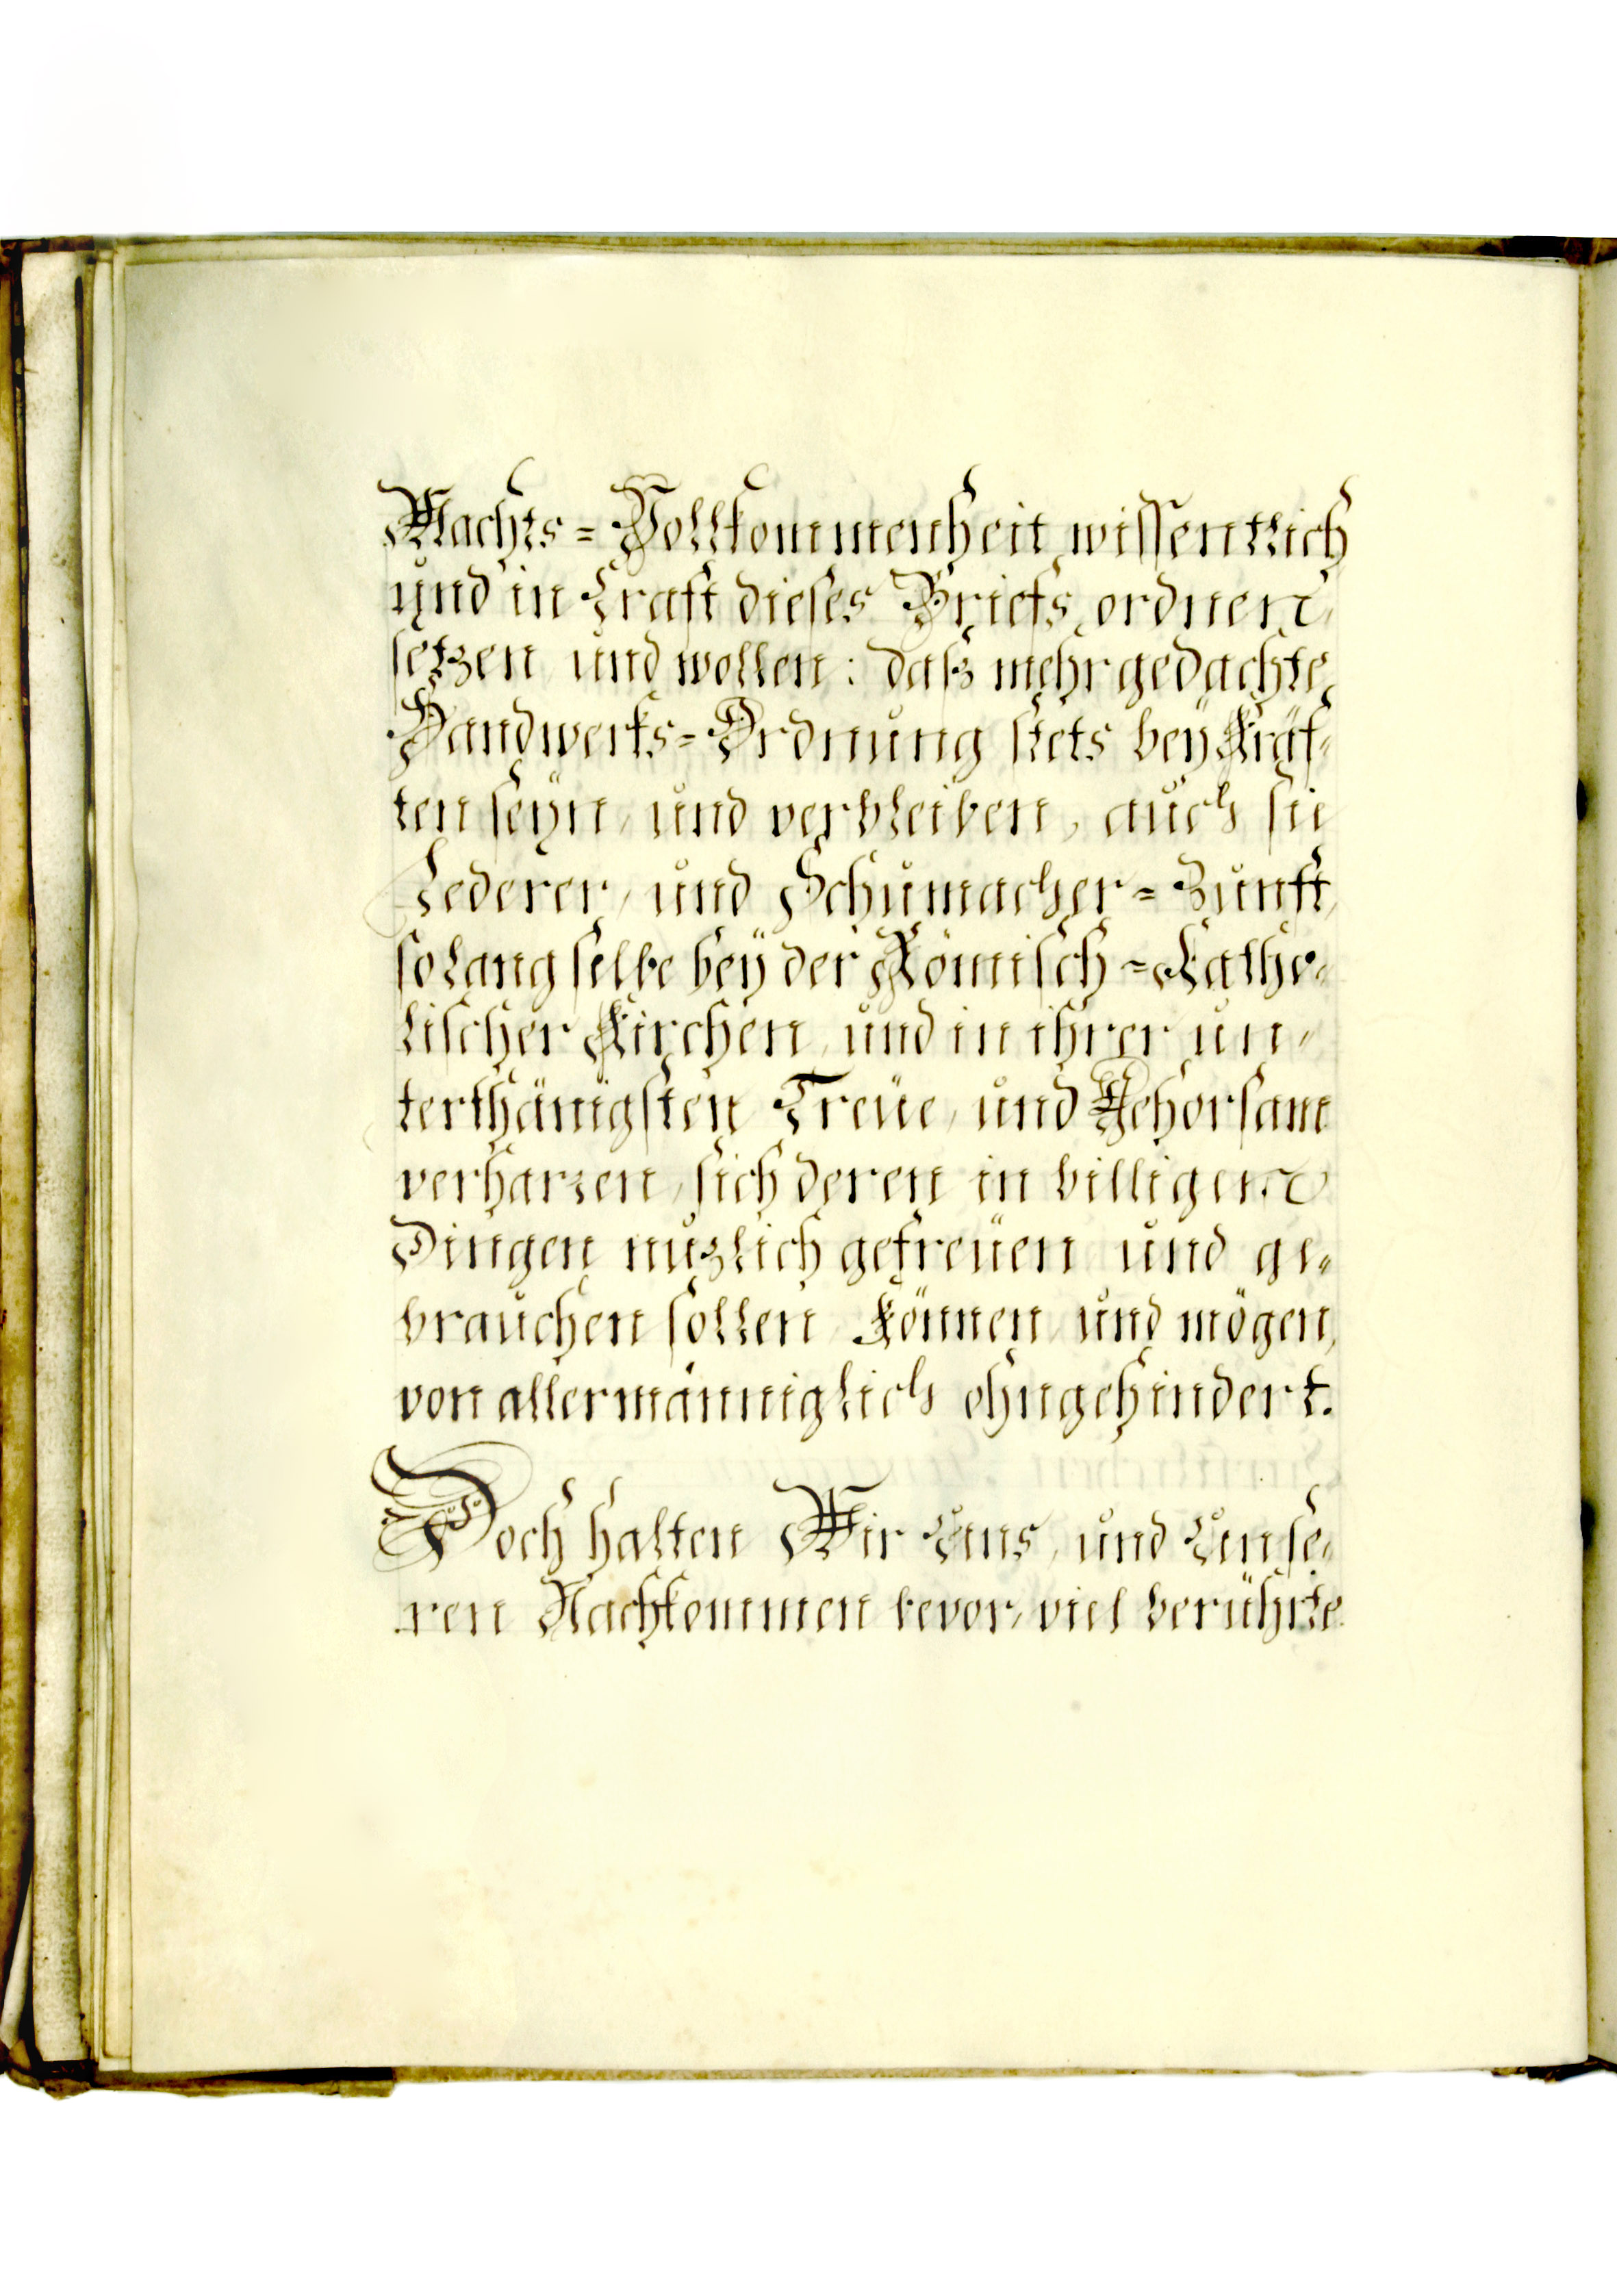 Machts=Vollkommenheit wissentlich
und in Craft dieses Briefs ordnen,
setzen und wollen: daß mehrgedachte
Handwerks=Ordnung stets bey Kräf-
ten seyn, und verbleiben, auch sie
Lederer, und Schumacher=Zunft,
solang selbe bey der Römisch=Catho-
lischer Kirchen, und in ihrer un-
terthänigsten Treüe, und Gehorsam
verharren, sich deren in billigen
Dingen nuzlich gefreüen und ge-
brauchen sollen, können, und mögen,
von allermänniglich ohngehindert.
Doch halten Wir Uns, und Unse-
ren Nachkommen bevor, viel berührte